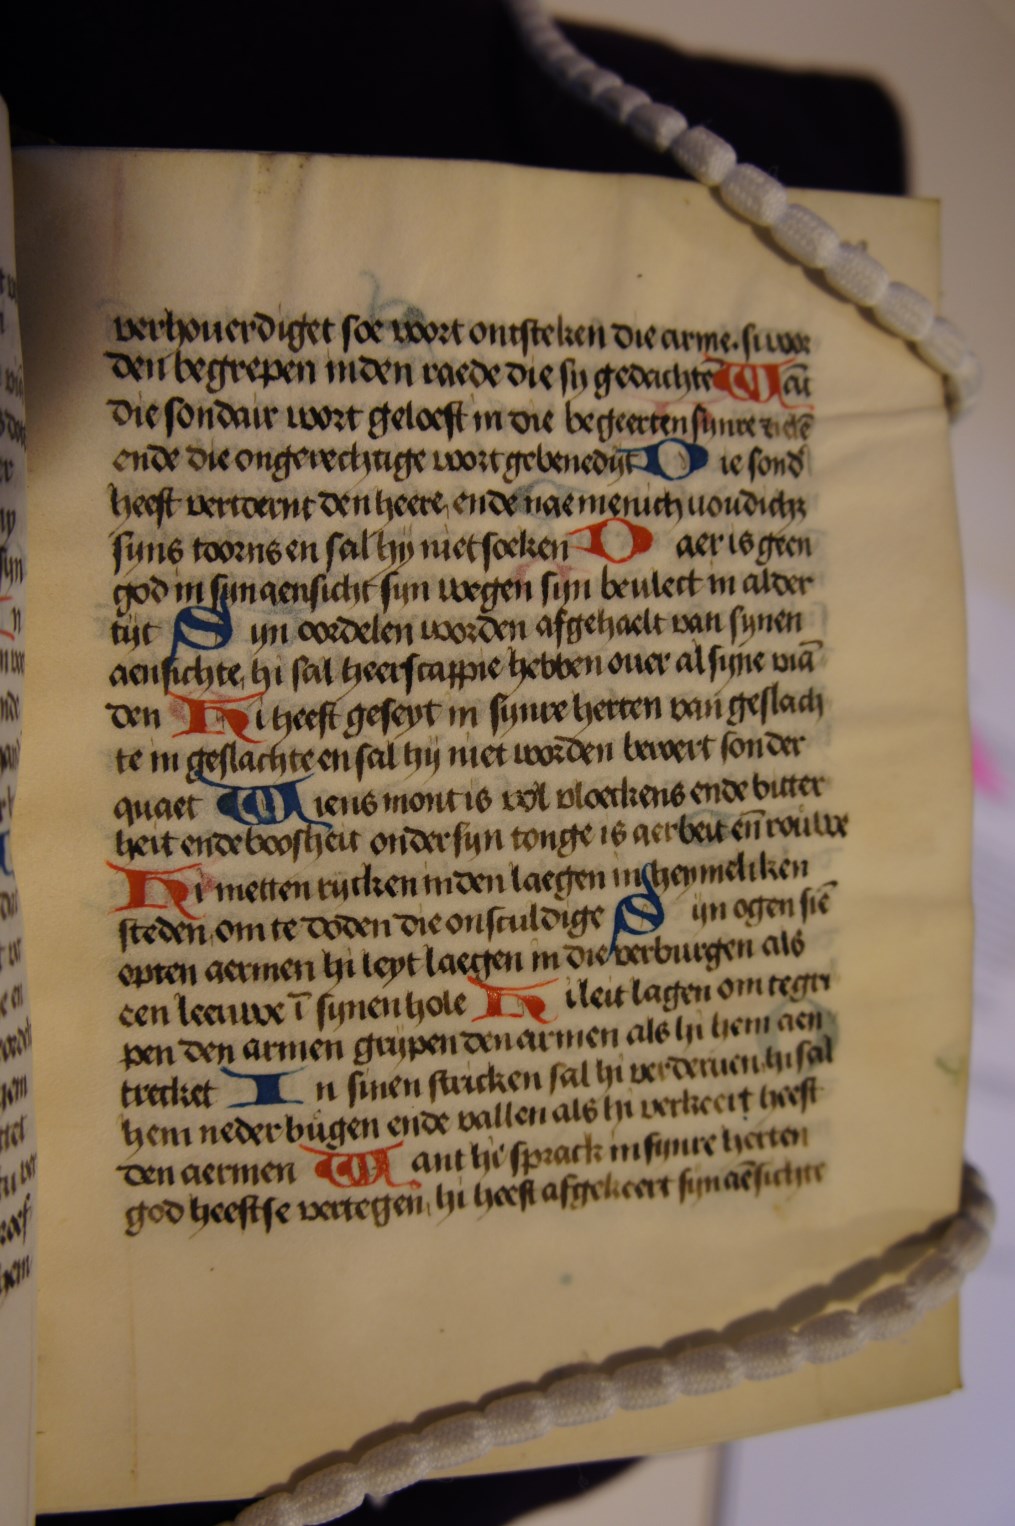 verhouerdiget soe wort ontsteken die arme. si wor
den begrepen inden raede die sy gedachtē Wāt
die sondair wort geloeft in die begeerten synre zielē
ende die ongerechtige wort gebenedyt Die sond
heeft vertoernt den heere, ende nae menichuoudicht
syns toorns en sal hy niet soeken Daer is geen
god in syn aensicht syn wegen syn beulect in alder
tijt Syn oordelen worden afgehaelt van synen
aensichte, hi sal heerscappie hebben ouer al syne viā
den Hi heeft geseyt in synre herten van geslach
te in geslachte en sal hij niet worden bewert sonder
quaet Wiens mont is vol vloeckens ende bitter
heit ende boosheit onder syn tonge is aerbeit eñ rouwe
Hi met ten rycken inden laegen in heymeliken
steden, om te doden die onsculdige Syn ogen siē
opten aermen hi leyt laegen in die verburgen als
een leeuwe ī synen hole Hi leit lagen om te gri
pen den armen grijpen den armen als hi hem aen
trecket In sinen stricken sal hi verderuen, hi sal
hem neder bugen ende vallen als hi verkeert heeft
den aermen Want hi sprack in synre herten
god heeftse vertegen, hi heeft afgekeert syn aēsichte